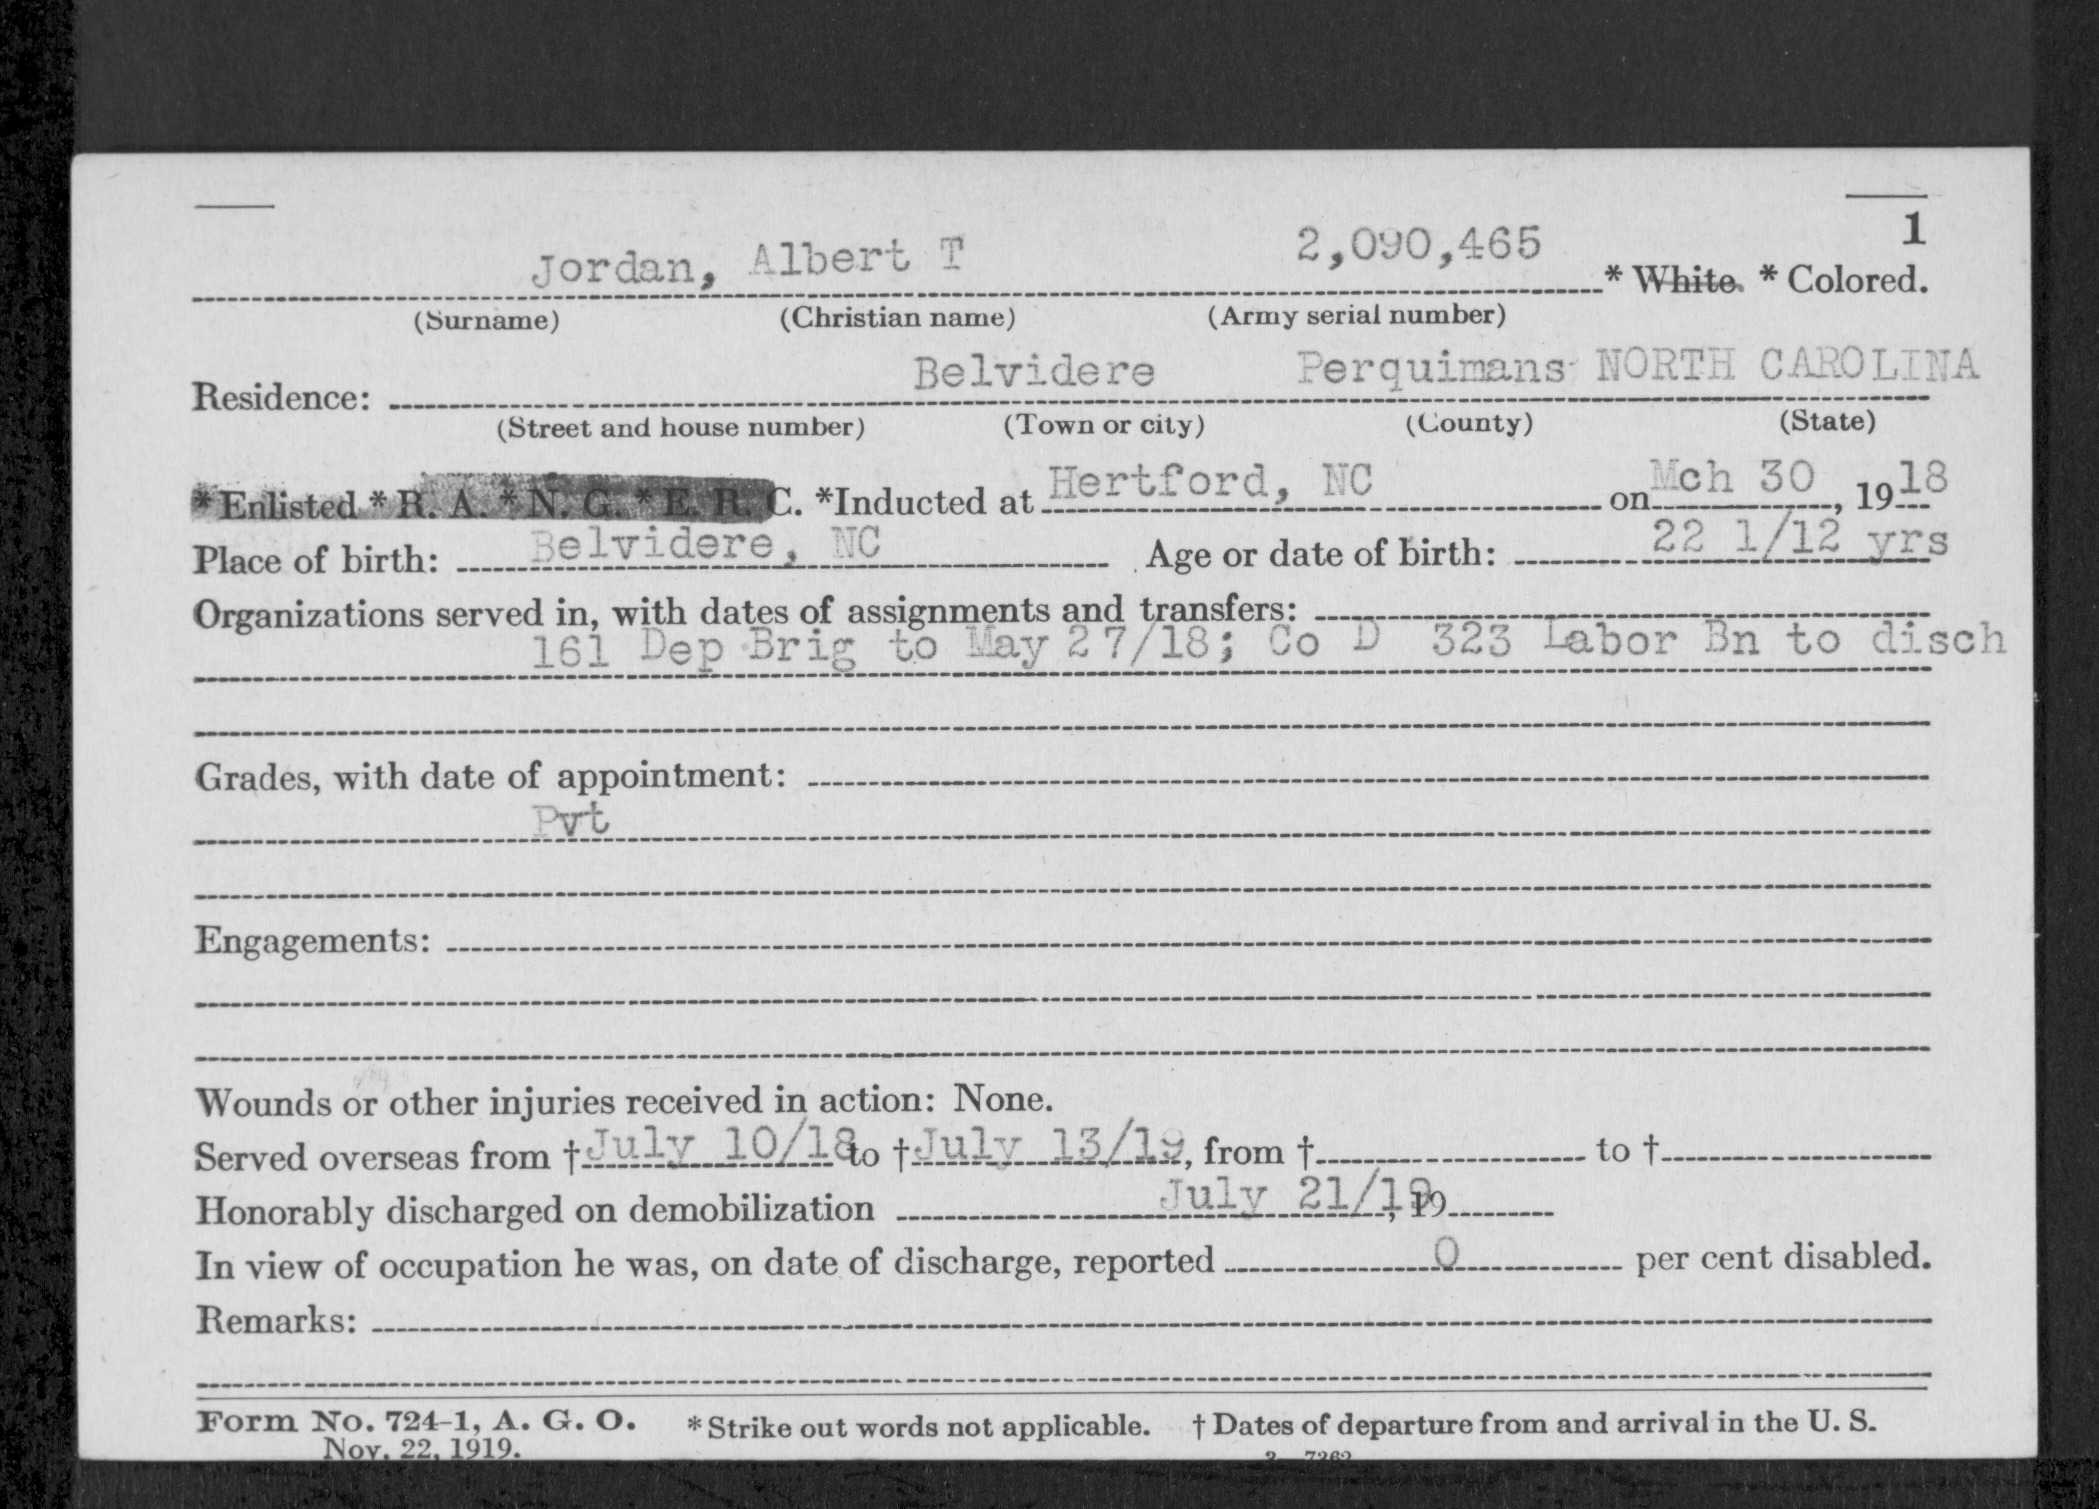 1
Jordan, Albert T 2,090,465 * White. * Colored.
(Surname) (Christian name) (Army serial number)
Residence: Belvidere Perquimans NORTH CAROLINA
(Street and house number) (Town or city) (County) (State)
*Enlisted *R. A. *N. G. *E. R. C. *Inducted at Hertford, NC on Mch 30, 1918
Place of birth: Belvidere, NC Age or date of birth: 22 1/12 yrs
Organizations served in, with dates of assignments and transfers:
161 Dep Brig to May 27/18; Co D 323 Labor Bn to disch
Grades, with date of appointment:
Pvt
Engagements:
Wounds or other injuries received in action: None.
Served overseas from †July 10/18 to †July 13/19, from † to †
Honorably discharged on demobilization July 21/19, 19
In view of occupation he was, on date of discharge, reported 0 per cent disabled.
Remarks:
Form No. 724-1, A. G. O. *Strike out words not applicable. † Dates of departure from and arrival in the U. S.
Nov. 22, 1919.